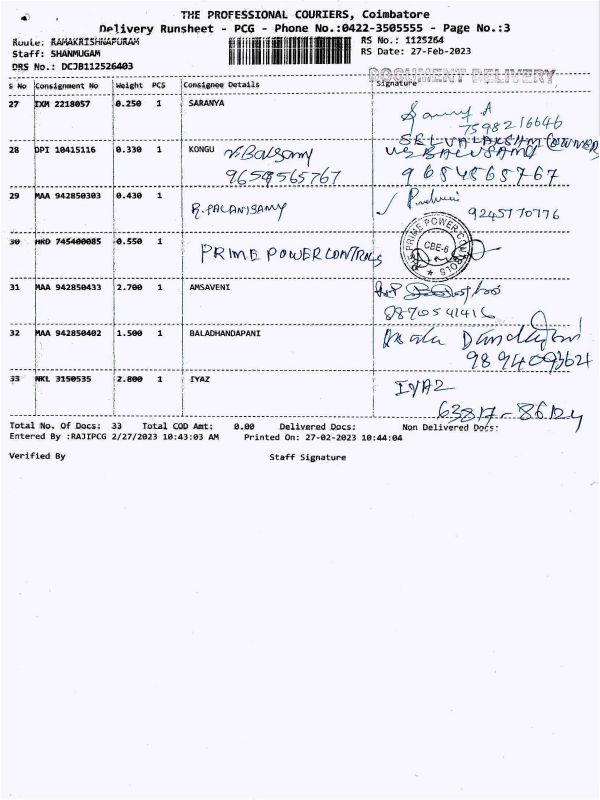 THE PROFESSIONAL COURIERS, Coimbatore
Delivery Runsheet - PCG - Phone No.:0422-3505555 - Page No.:3
Route: RAMAKRISHNAPURAM
RS No.: 1125264
Staff: SHANMUGAM
RS Date: 27-Feb-2023
DRS No.: DCJB112526403
DOCUMENT DELIVERY
S No Consignment No Weight PCS Consignee Details Signature
27 IXM 2218057 0.250 1 SARANYA
7598216646
28 DPI 10415116 0.330 1 KONGU V. Balsamy
9659565767
29 MAA 942850303 0.430 1 R. PALANISAMY
9245770776
30 HRD 745400085 0.550 1 PRIME POWER CONTROLS
PRIME POWER CONTROLS
CBE-6
31 MAA 942850433 2.700 1 AMSAVENI
9870541416
32 MAA 942850402 1.500 1 BALADHANDAPANI
33 NKL 3150535 2.800 1 IYAZ
IYAZ
Total No. Of Docs: 33 Total COD Amt: 0.00 Delivered Docs: Non Delivered Docs:
Entered By :RAJIPCG 2/27/2023 10:43:03 AM Printed On: 27-02-2023 10:44:04
Verified By Staff Signature